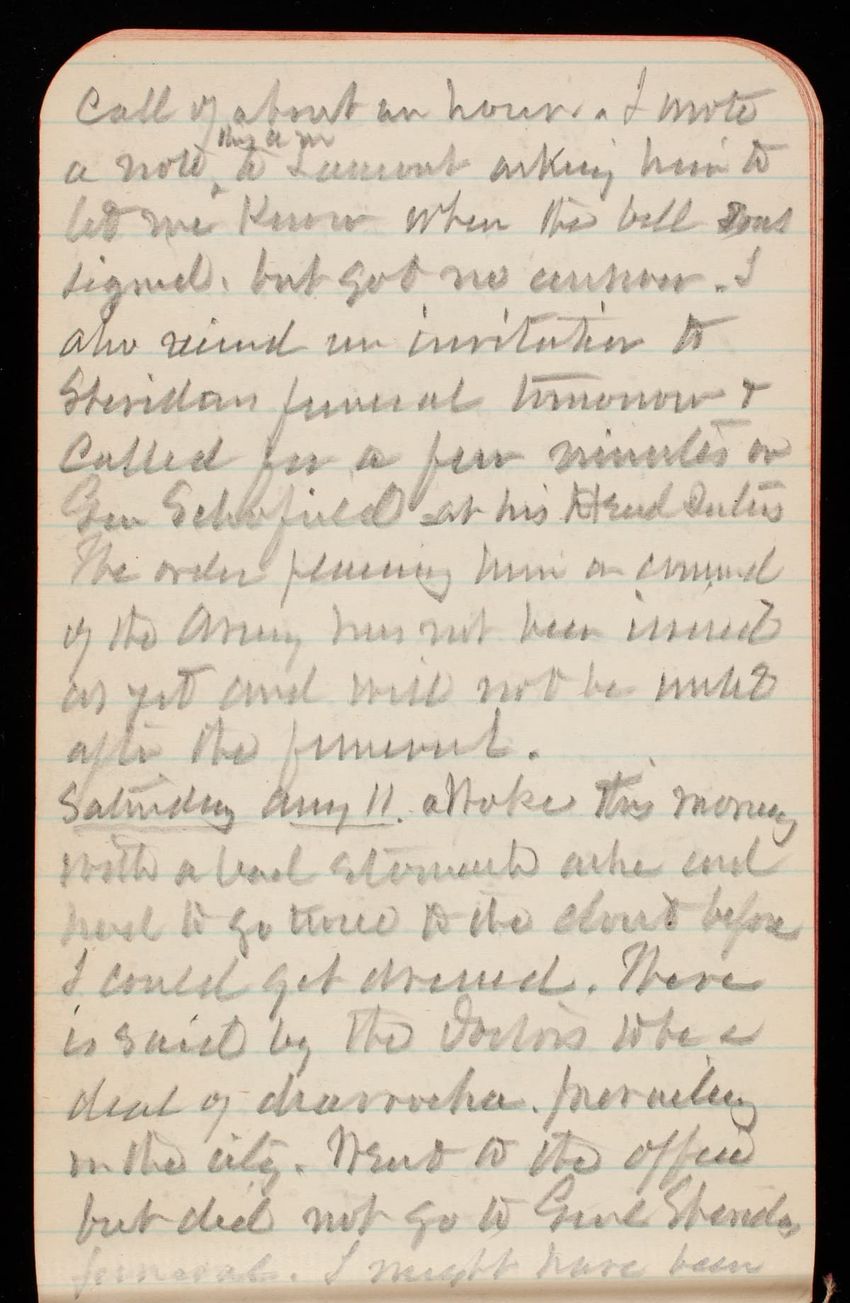 Call of about an hour. I wrote
this a m
a note to Lamont asking him to
let me know when the bill was
signed, but got no answer. I
also recieved an invitation to
Sheridans funeral tomorrow &
Called for a few minutes on
Gen Schofield at his Head Quters
The order placing him in command
of the Army has not been issued
as yet and will not be until
after the funeral.
Saturday Aug 11. Awoke this morning
with a bad stomach ache and
had to go twice to the closet before
I could get dressed. There
is said by the Doctors to be a
deal of diarroehea prevailing
in the city. Went to the office
but did not go to Genl Sheridas
funeral. I might have been